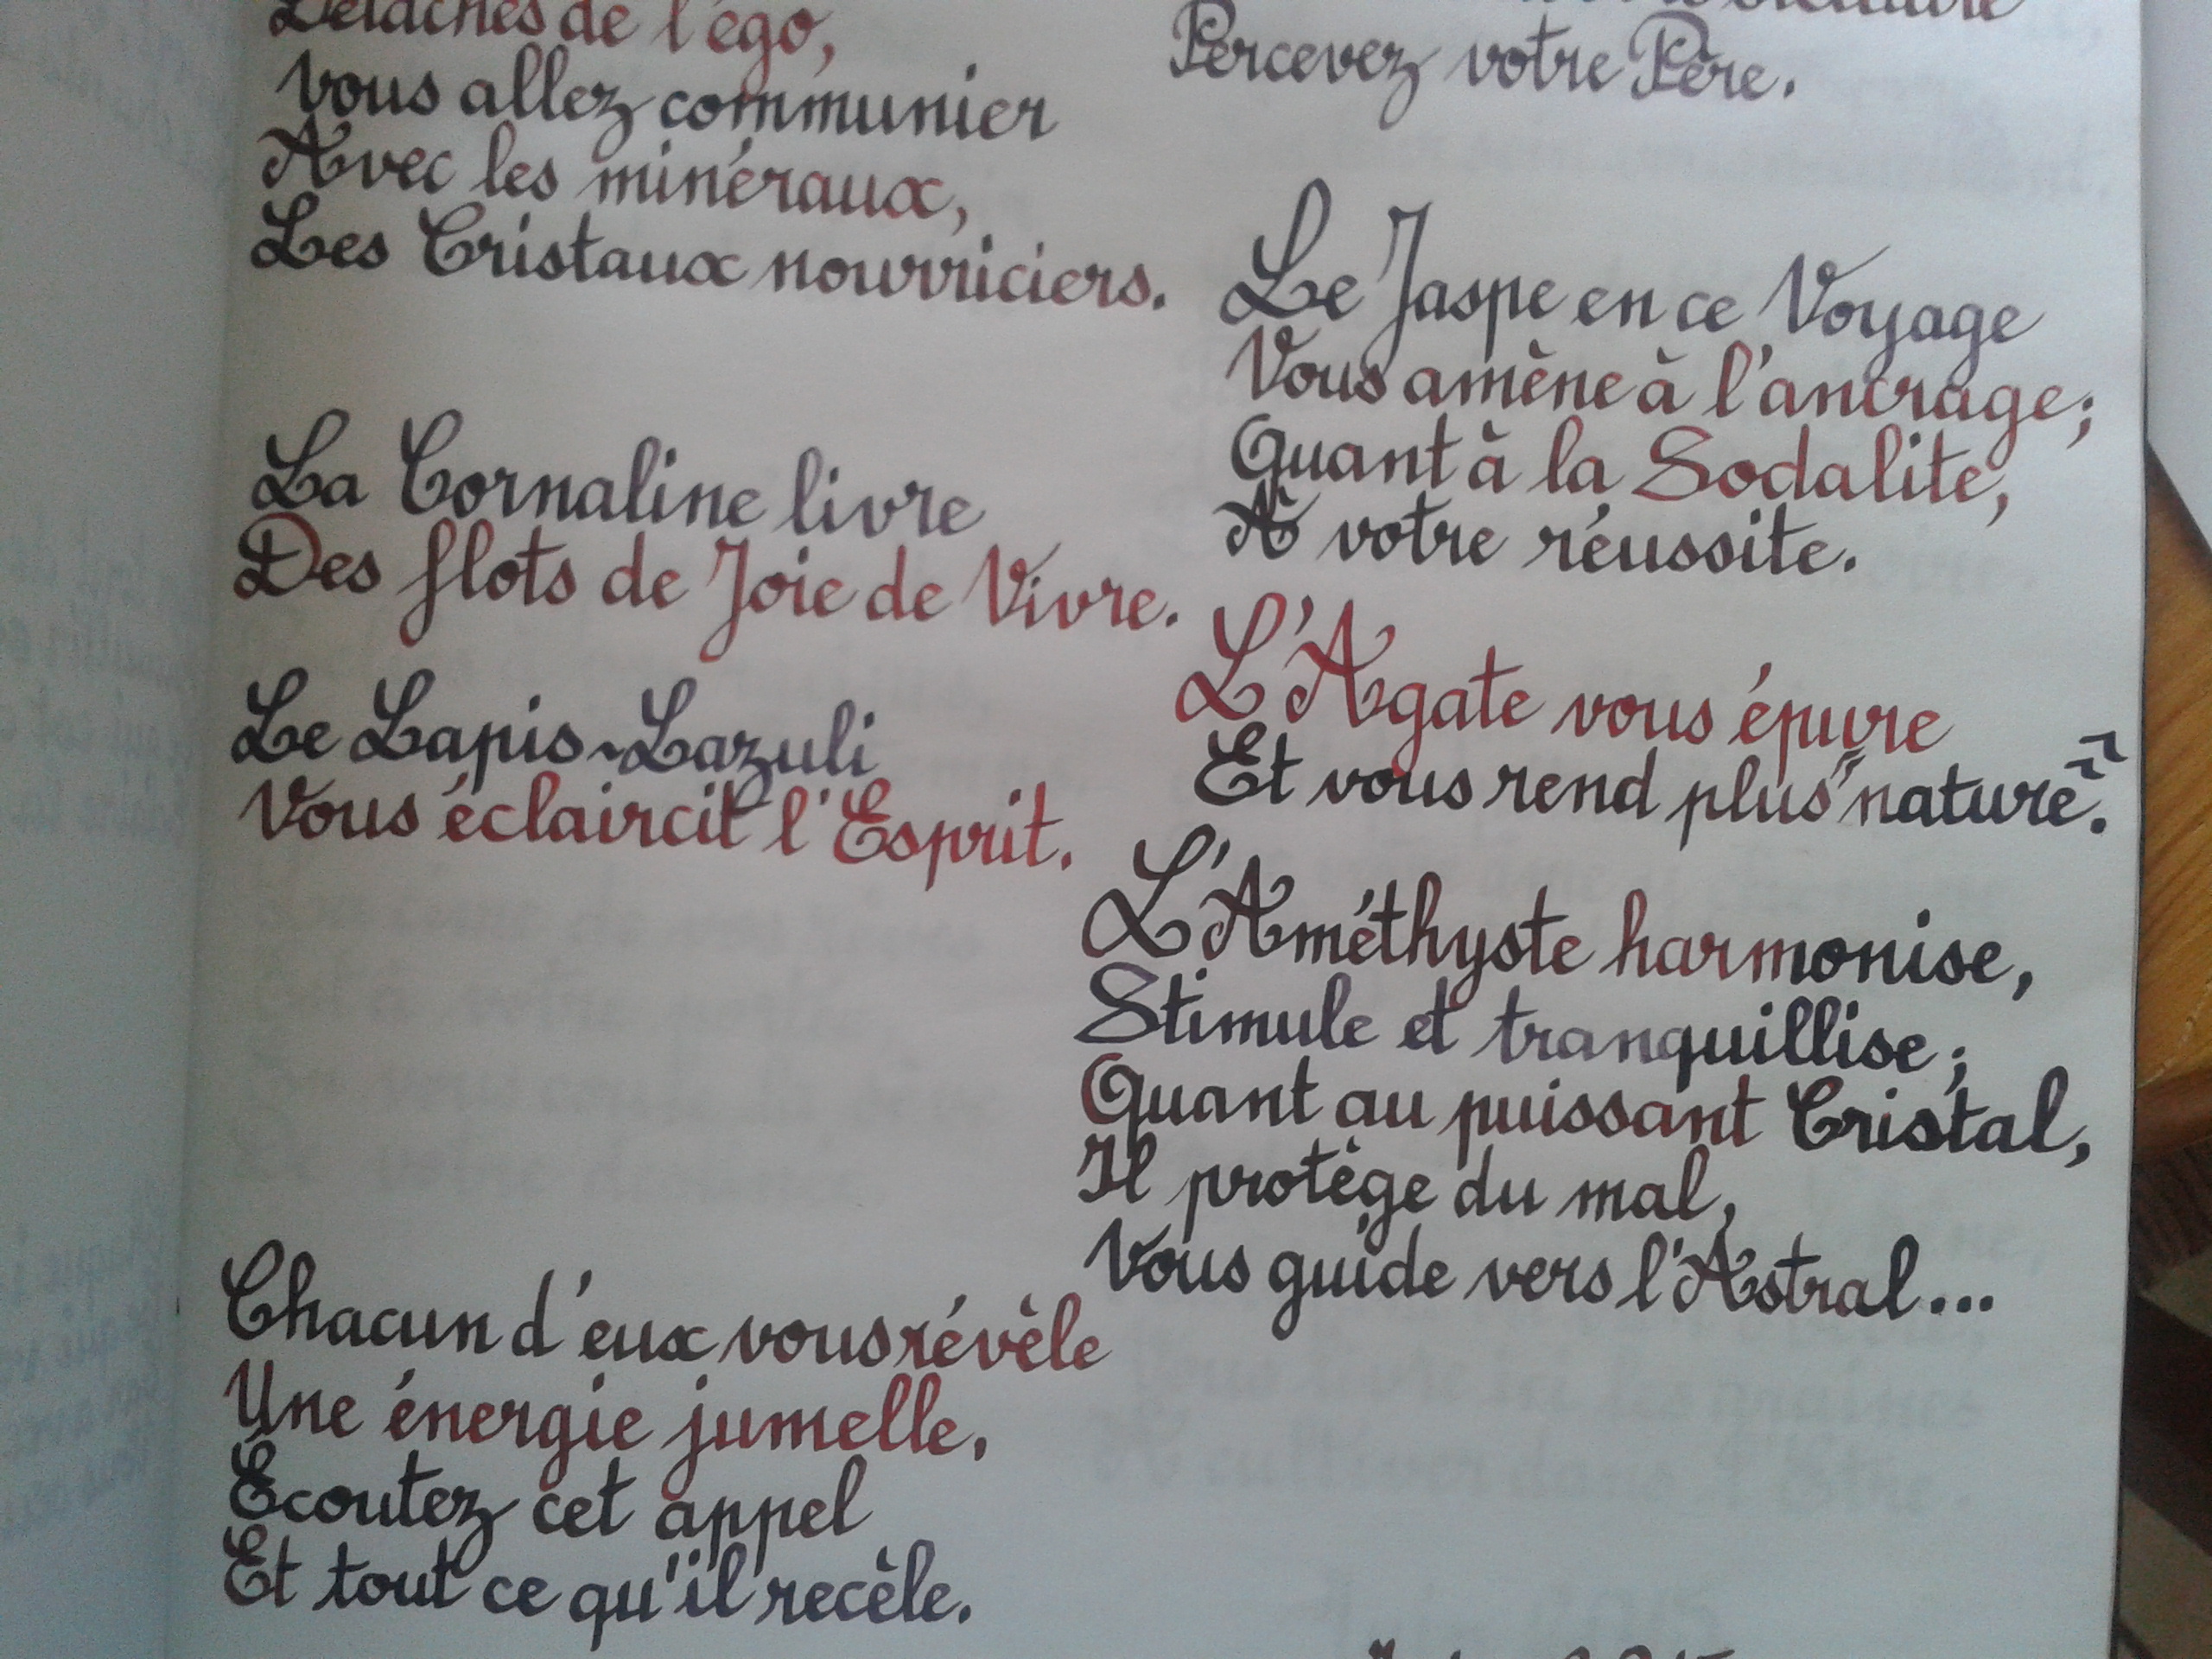 Détachés de l'égo,
vous allez communier
Avec les minéraux,
Les Cristaux nourriciers.
La Cornaline livre
Des flots de Joie de Vivre.
Le Lapis-Lazuli
Vous éclaircit l'Esprit.
Chacun d'eux vous révèle
Une énergie jumelle,
Écoutez cet appel
Et tout ce qu'il recèle.
Percevez votre Père.
Le Jaspe en ce Voyage
Vous amène à l'ancrage;
Quant à la Sodalite,
À votre réussite.
L'Agate vous épure
Et vous rend plus "nature".
L'Améthyste harmonise,
Stimule et tranquillise;
Quant au puissant Cristal,
Il protège du mal,
Vous guide vers l'Astral...